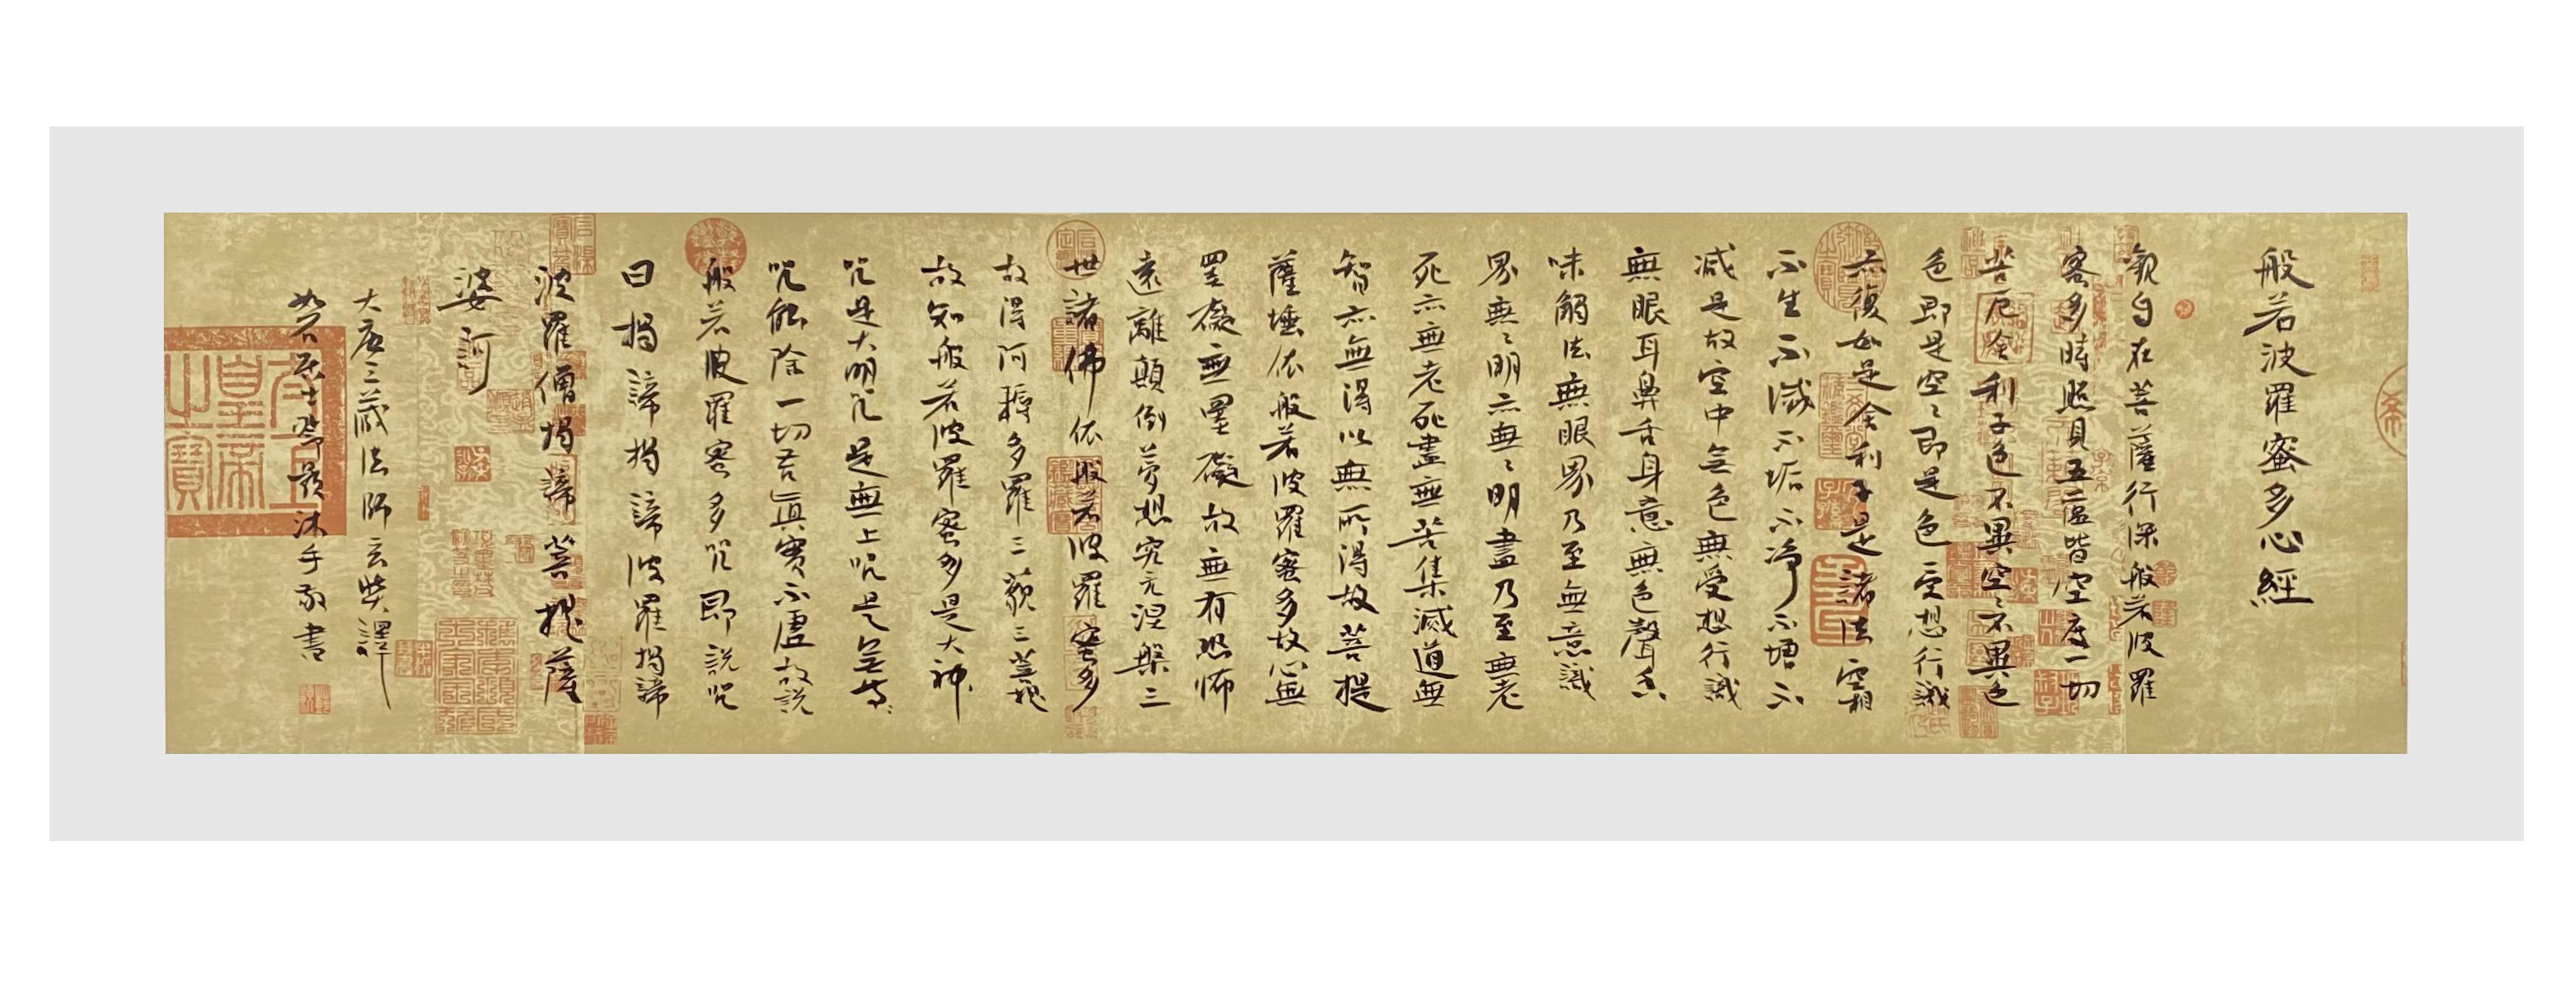 般若波羅蜜多心經
觀自在菩薩行深般若波羅
蜜多時照見五蘊皆空度一切
苦厄舍利子色不異空〻不異色
色即是空〻即是色受想行識
亦復如是舍利子是諸法空相
不生不滅不垢不淨不增不
減是故空中無色無受想行識
無眼耳鼻舌身意無色聲香
味觸法無眼界乃至無意識
界無〻明亦無〻明盡乃至無老
死亦無老死盡無苦集滅道無
智亦無得以無所得故菩提
薩埵依般若波羅蜜多故心無
罣礙無罣礙故無有恐怖
遠離顛倒夢想究竟涅槃三
世諸佛依般若波羅蜜多
故得阿耨多羅三藐三菩提
故知般若波羅蜜多是大神
咒是大明咒是無上咒是無等〻
咒能除一切苦真實不虛故說
般若波羅蜜多咒即說咒
曰揭諦揭諦波羅揭諦
波羅僧揭諦菩提薩
婆訶
大唐三藏法師玄奘譯
居士沐手敬書